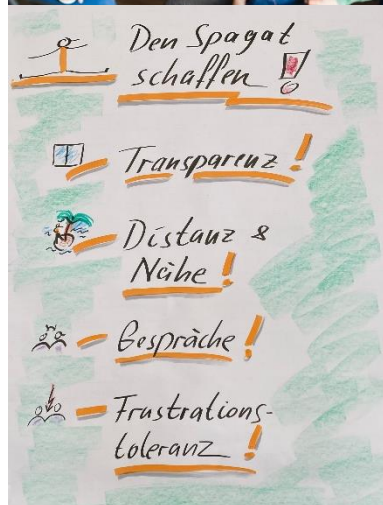 Den Spagat
schaffen!
Transparenz!
Distanz &
Nähe!
Gespräche!
Frustrations-
toleranz!